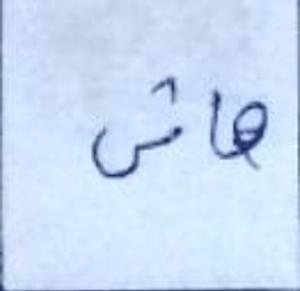 هاش